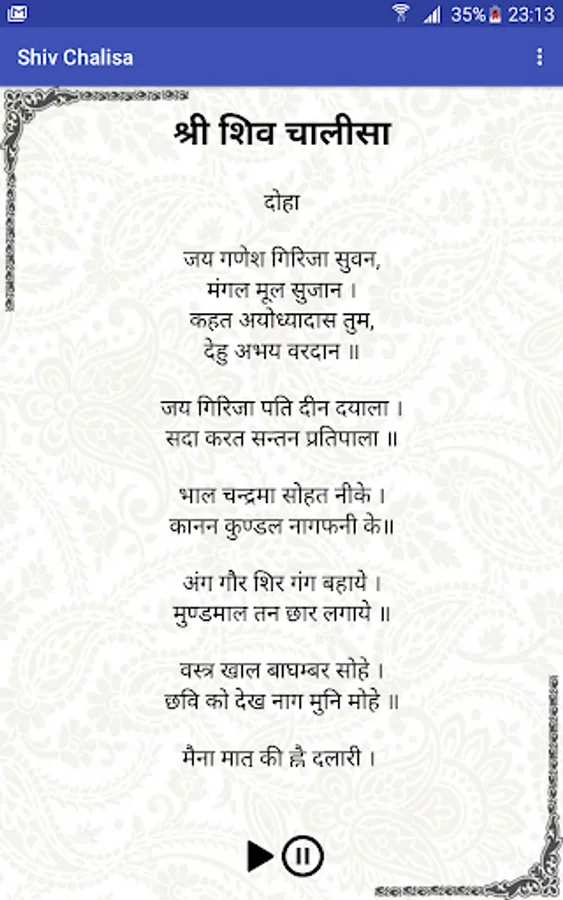 35% 23:13
Shiv Chalisa
श्री शिव चालीसा
दोहा
जय गणेश गिरिजा सुवन,
मंगल मूल सुजान ।
कहत अयोध्यादास तुम,
देहु अभय वरदान ॥
जय गिरिजा पति दीन दयाला ।
सदा करत सन्तन प्रतिपाला ॥
भाल चन्द्रमा सोहत नीके ।
कानन कुण्डल नागफनी के॥
अंग गौर शिर गंग बहाये ।
मुण्डमाल तन छार लगाये ॥
वस्त्र खाल बाघम्बर सोहे ।
छवि को देख नाग मुनि मोहे ॥
मैना मातु की ह्वै दुलारी ।